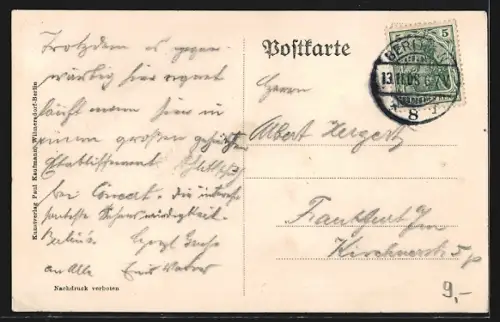 Trotzdem es gegen-
wärtig hier regnet
läuft man hier in
einem großen
Etablissement Schlittschuh
bei Concert. Die interes-
santeste Sehenswürdigkeit
Berlins. Herzl. Grüße
an Alle
Nachdruck verboten
Kunstverlag Paul Kaufmann, Wilmersdorf-Berlin
Postkarte
Herrn
Albert
Frankfurt a/m
5
BERLIN
13.11.08
8
9,-